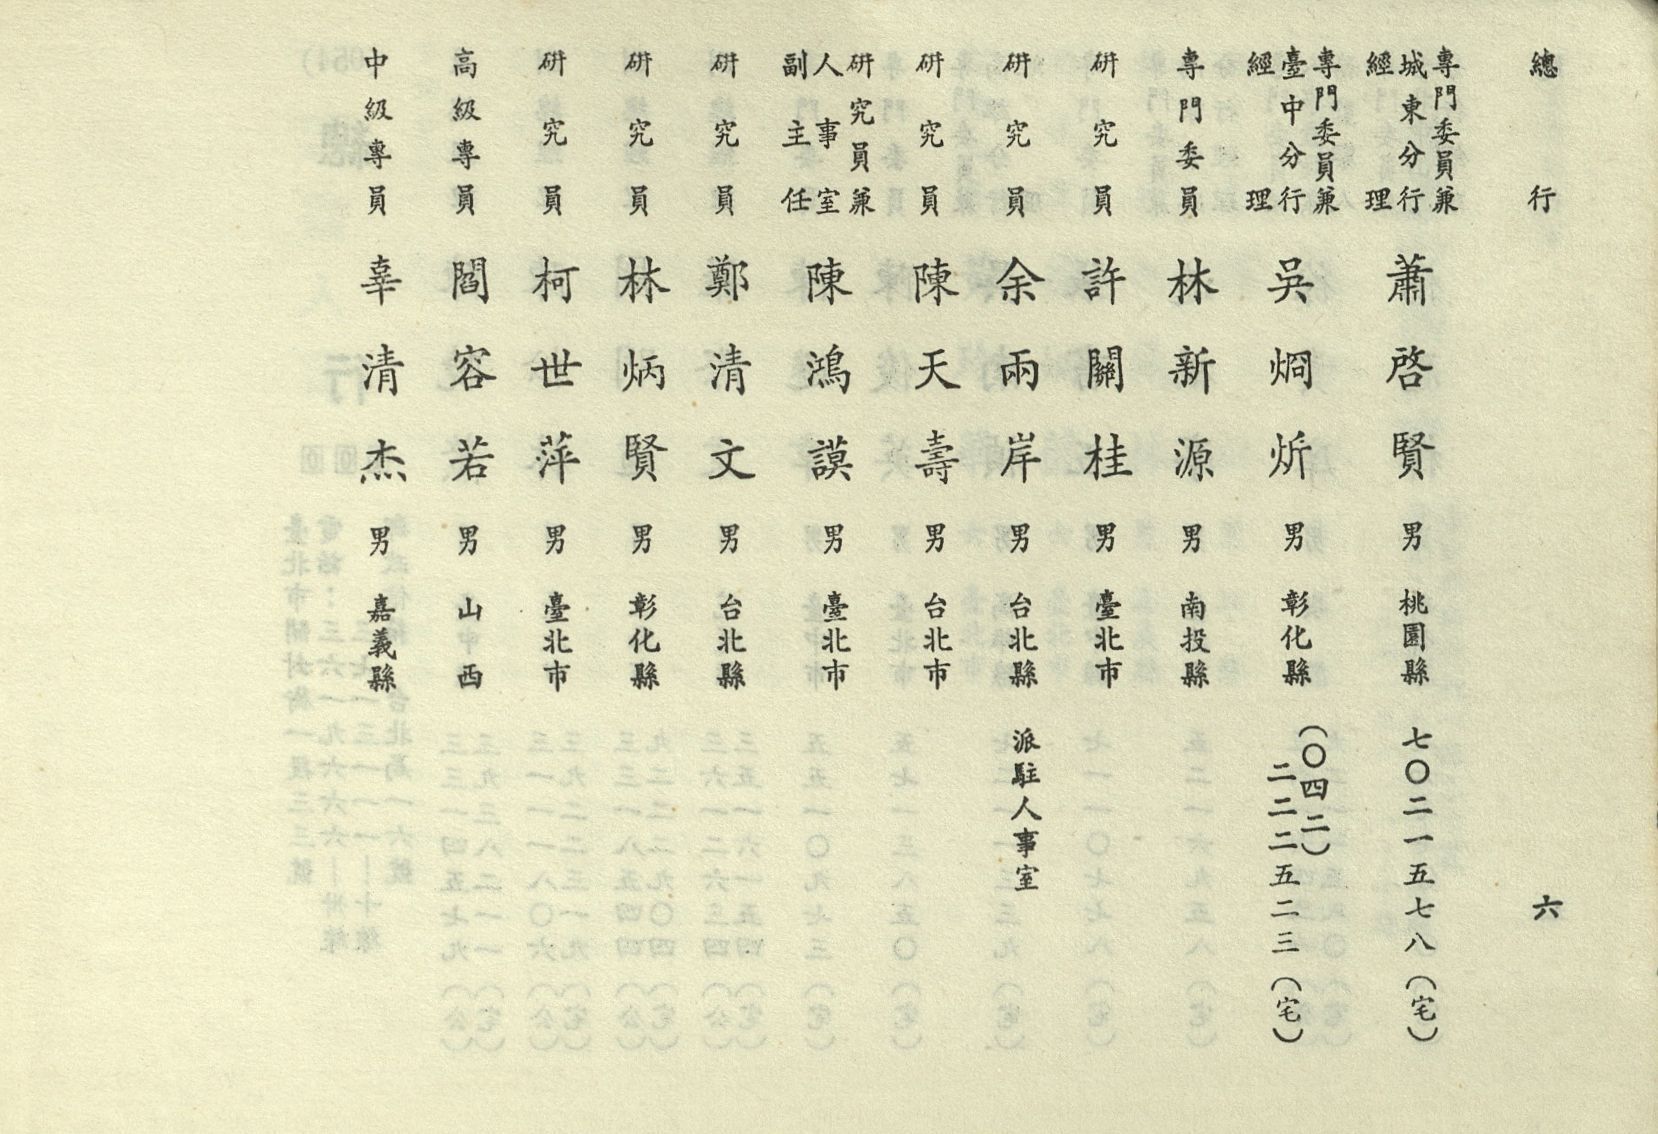 總行 六
專門委員兼城東分行經理 蕭啓賢 男 桃園縣 七〇二一五七八(宅)
專門委員兼臺中分行經理 吳烱炘 男 彰化縣 (〇四二)二二二五二三(宅)
專門委員 林新源 男 南投縣
研究員 許關桂 男 臺北市
研究員 余兩岸 男 台北縣 派駐人事室
研究員 陳天壽 男 台北市
研究員兼人事室副主任 陳鴻謨 男 臺北市
研究員 鄭清文 男 台北縣
研究員 林炳賢 男 彰化縣
研究員 柯世萍 男 臺北市
高級專員 閻容若 男 山西
中級專員 辜清杰 男 嘉義縣